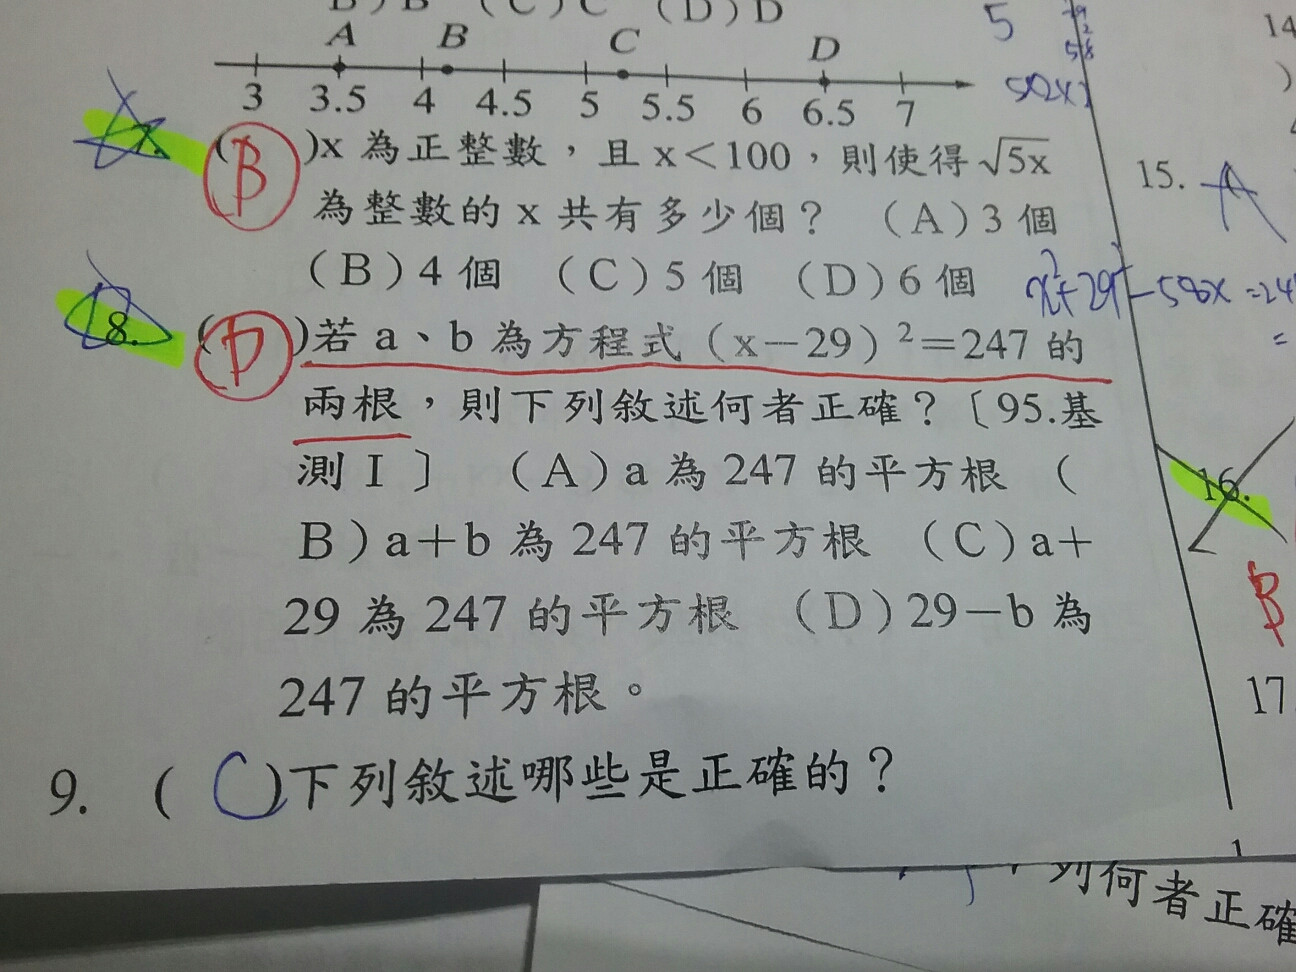 B)B (C)C (D)D
A B C D
3 3.5 4 4.5 5 5.5 6 6.5 7
7. (B)x 為正整數，且 x＜100，則使得 √5x
為整數的 x 共有多少個？ (A)3 個
(B)4 個 (C)5 個 (D)6 個
8. (D)若 a、b 為方程式（x－29）²＝247 的
兩根，則下列敘述何者正確？〔95.基
測Ⅰ〕 (A)a 為 247 的平方根 (
B)a＋b 為 247 的平方根 (C)a＋
29 為 247 的平方根 (D)29－b 為
247 的平方根。
9. (C)下列敘述哪些是正確的？
5
29
2
58
14
15. A
16.
B
17
1
列何者正確